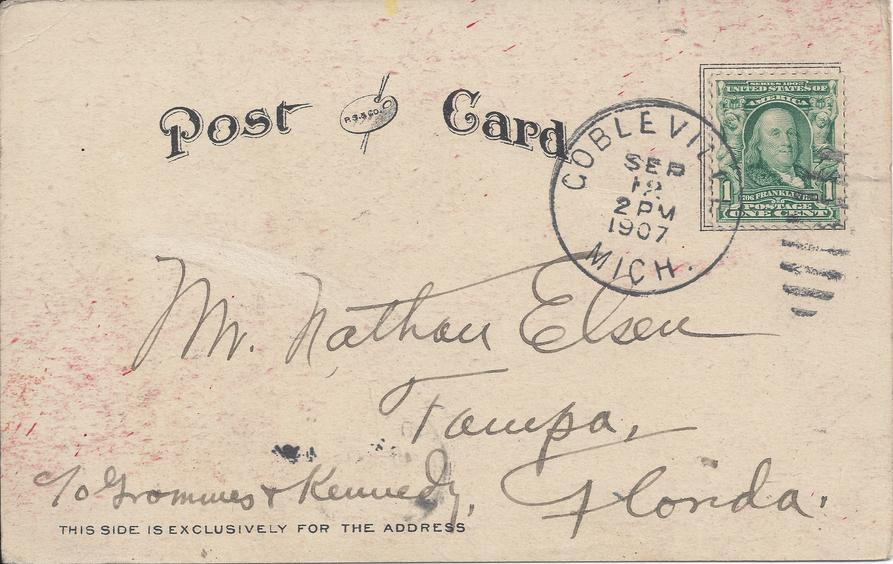 Post Card
P.S.& CO.
SERIES 1902
UNITED STATES OF
AMERICA
1 FRANKLIN 1
POSTAGE
ONE CENT
COBLEVIL
SEP
12
2 PM
1907
MICH.
Mr. Nathan Elsen
Tampa,
Florida.
℅ Grommes & Kennedy,
THIS SIDE IS EXCLUSIVELY FOR THE ADDRESS